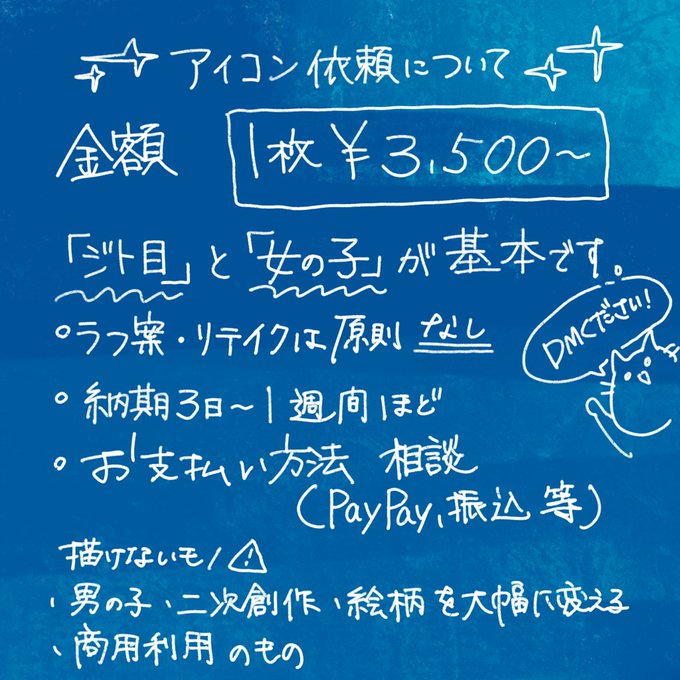 アイコン依頼について
金額 1枚¥3,500～
「ジト目」と「女の子」が基本です。
DMください!
ラフ案・リテイクは原則 なし
納期3日～1週間ほど
お支払い方法 相談
(PayPay、振込 等)
描けないモノ⚠
・男の子、二次創作、絵柄を大幅に変える
、商用利用のもの